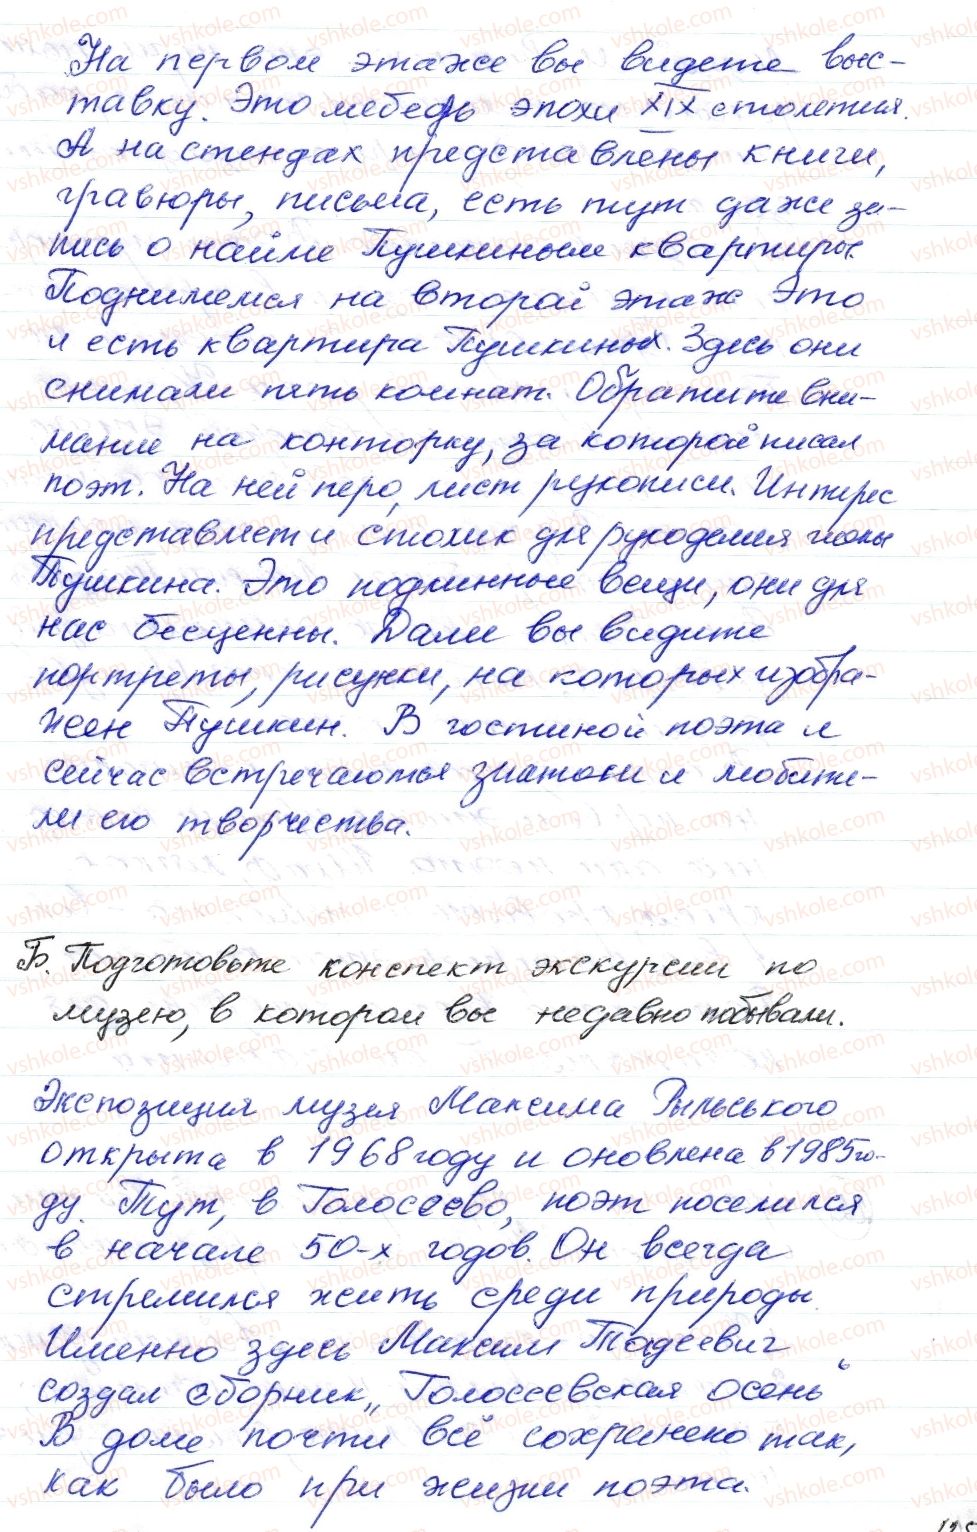 На первом этаже вы видете выс-
тавку. Это мебель эпохи XIX столетия.
А на стендах представлены книги,
гравюры, письма, есть тут даже за-
пись о найме Пушкиным квартиры.
Поднимемся на второй этаж Это
и есть квартира Пушкиных. Здесь они
снимали пять комнат. Обратите вни-
мание на конторку, за которой писал
поэт. На ней перо, лист рукописи. Интерес
представляет и столик для рукоделия жены
Пушкина. Это подлинные вещи, они для
нас бесценны. Далее вы видите
портреты, рисунки, на которых изобра-
жен Пушкин. В гостиной поэта и
сейчас встречаются знатоки и любите-
ли его творчества.
Б. Подготовьте конспект экскурсии по
музею, в котором вы недавно побывали.
Экспозиция музея Максима Рыльського
открыта в 1968 году и оновлена в 1985 го-
ду. Тут, в Голосеево, поэт поселился
в начале 50-х годов. Он всегда
стремился жить среди природы.
Именно здесь Максим Тадеевич
создал сборник „Голосеевская осень“
В доме почти всё сохранено так,
как было при жизни поэта.